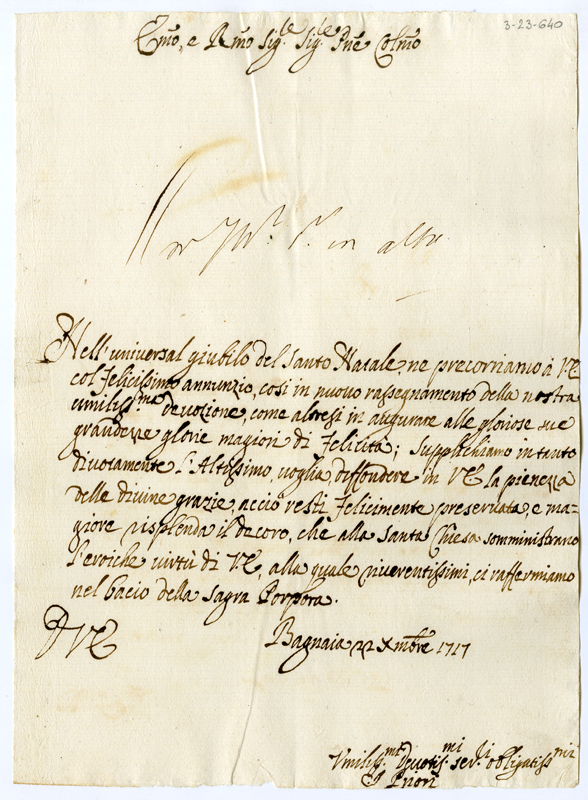 3-23-640
Emo, e Rmo Sig.re Sig.re Pne Colmo
in alto
Nell'universal giubilo del Santo Natale, ne precorriamo à VE
col felicissimo annunzio, così in nuovo rassegnamento della nostra
umiliss.ma devozione, come altresi in augurare alle gloriose sue
grandezze glorie magiori di felicità; supplichiamo intanto
divotamente l'Altissimo, voglia diffondere in VE la pienezza
delle divine grazie, acciò resti felicemente preservata, e ma-
giore risplenda il decoro, che alla Santa Chiesa somministrano
l'eroiche virtù di VE, alla quale riverentissimi, ci raffermiamo
nel bacio della Sagra Porpora.
D VE
Bagnaia 22 Xmbre 1717
Umiliss.mi Devotis.mi ser.i obligatiss.mi
I Priori